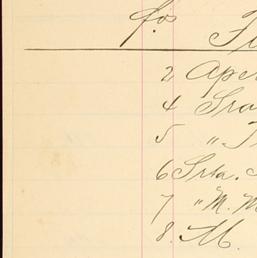 fos
2 Ape
4 Sra
5 "
6 Srta.
7 " M. M
8. M.